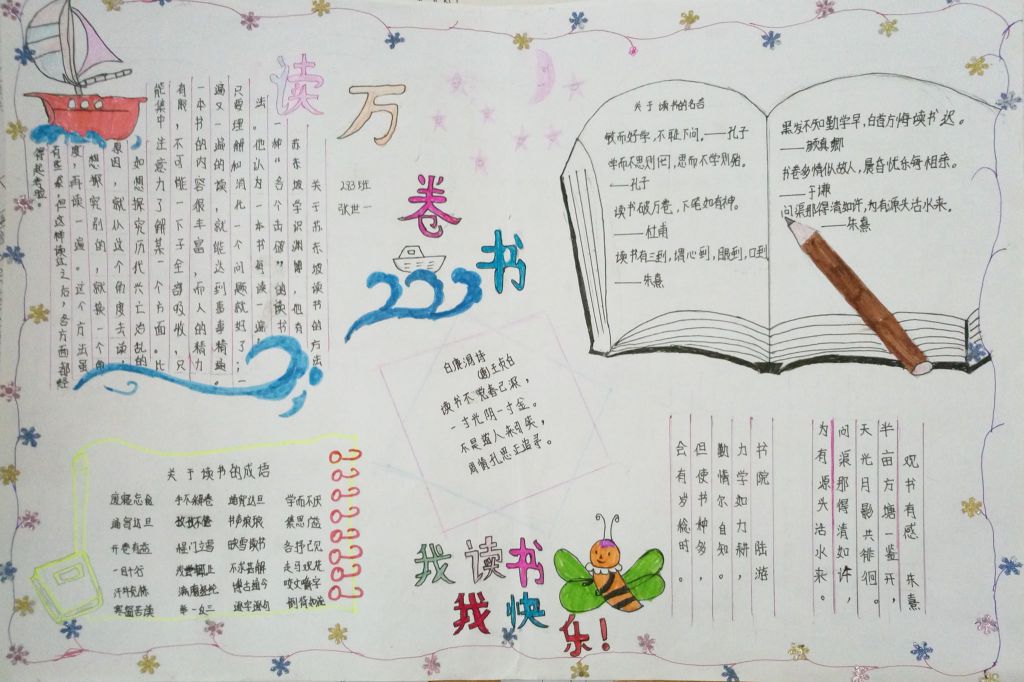 读万卷书
283班
张世一
关于苏东坡读书的方法
苏东坡学识渊博，也有
一种“各个击破”的读书
法。他认为一本书每读一遍，
只要理解和消化一个问题就好了；一
遍又一遍的读，就能达到事事精通。
一本书的内容很丰富，而人的精力
有限，不可能一下子全部吸收，只
能集中注意力了解某一个方面。比
如想探究历代兴亡治乱的
原因，就从这个角度去读；
想探究别的，就换一个角
度，再读一遍。这个方法虽
有些笨，但这样读过之后，各方面都经
得起考验。
关于读书的名言
敏而好学，不耻下问。——孔子
学而不思则罔，思而不学则殆。
——孔子
读书破万卷，下笔如有神。
——杜甫
读书有三到，谓心到，眼到，口到
——朱熹
黑发不知勤学早，白首方悔读书迟。
——颜真卿
书卷多情似故人，晨昏忧乐每相亲。
——于谦
问渠那得清如许，为有源头活水来。
——朱熹
白鹿洞诗
(唐)王贞白
读书不觉春已深，
一寸光阴一寸金。
不是道人来引笑，
周情孔思正追寻。
关于读书的成语
废寝忘食 手不释卷 通宵达旦 学而不厌
通宵达旦 孜孜不倦 书声琅琅 集思广益
开卷有益 程门立雪 映雪读书 各抒己见
一目十行 不求甚解 走马观花
汗牛充栋 滴水穿石 博古通今 咬文嚼字
寒窗苦读 举一反三 倒背如流
我读书
我快乐！
观书有感 朱熹
半亩方塘一鉴开，
天光月影共徘徊。
问渠那得清如许，
为有源头活水来。
书院 陆游
力学如力耕，
勤惰尔自知。
但使书种多，
会有岁稔时。